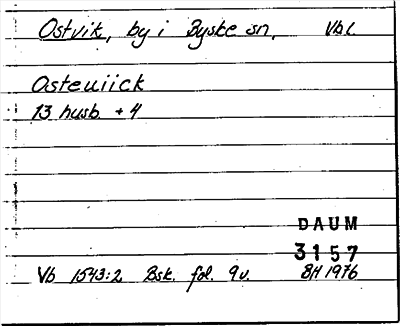 Ostvik, by i Byske sn, Vbl.
Osteuiick
13 husb. + 4
DAUM
3157
Vb 1543:2 Bsk. fol. 9v. BH 1976